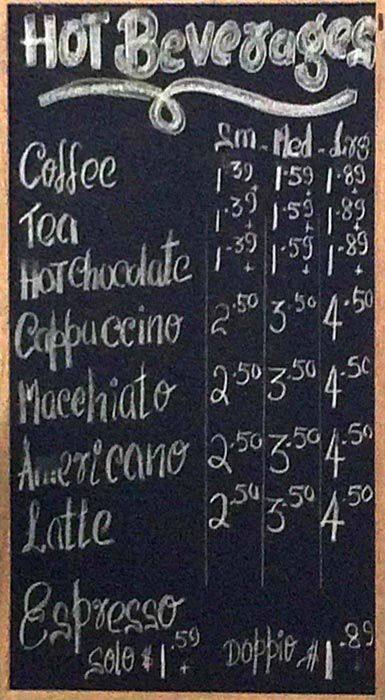 HOT Beverages
Sm - Med - Lrg
Coffee 1.39+ 1.59+ 1.89+
Tea 1.39+ 1.59+ 1.89+
HOT Chocolate 1.39+ 1.59+ 1.89+
Cappuccino 2.50 3.50 4.50
Macchiato 2.50 3.50 4.50
Americano 2.50 3.50 4.50
Latte 2.50 3.50 4.50
Espresso
Solo $1.59+ Doppio $1.89+